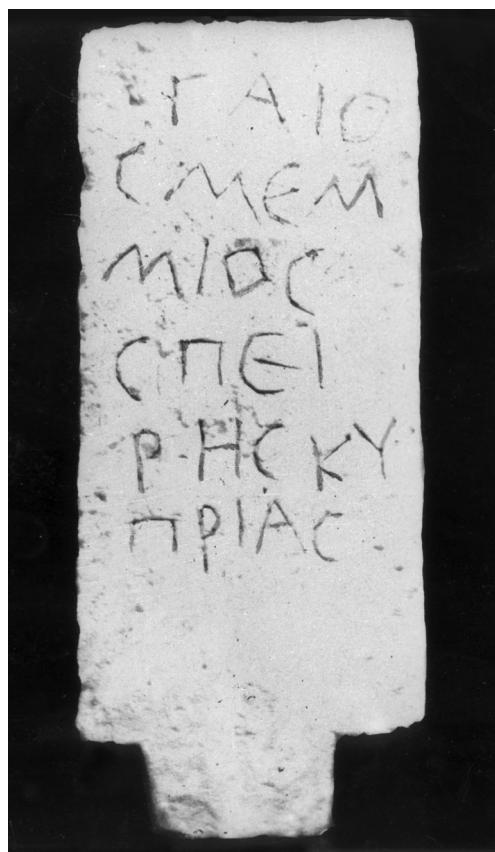 ΓΑΙΟ
ϹΜΕΜ
ΜΙΟϹ
ϹΠΕΙ
ΡΗϹΚΥ
ΠΡΙΑϹ